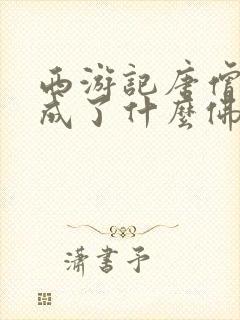 西游記唐僧
成了什麼佛
瀟書予